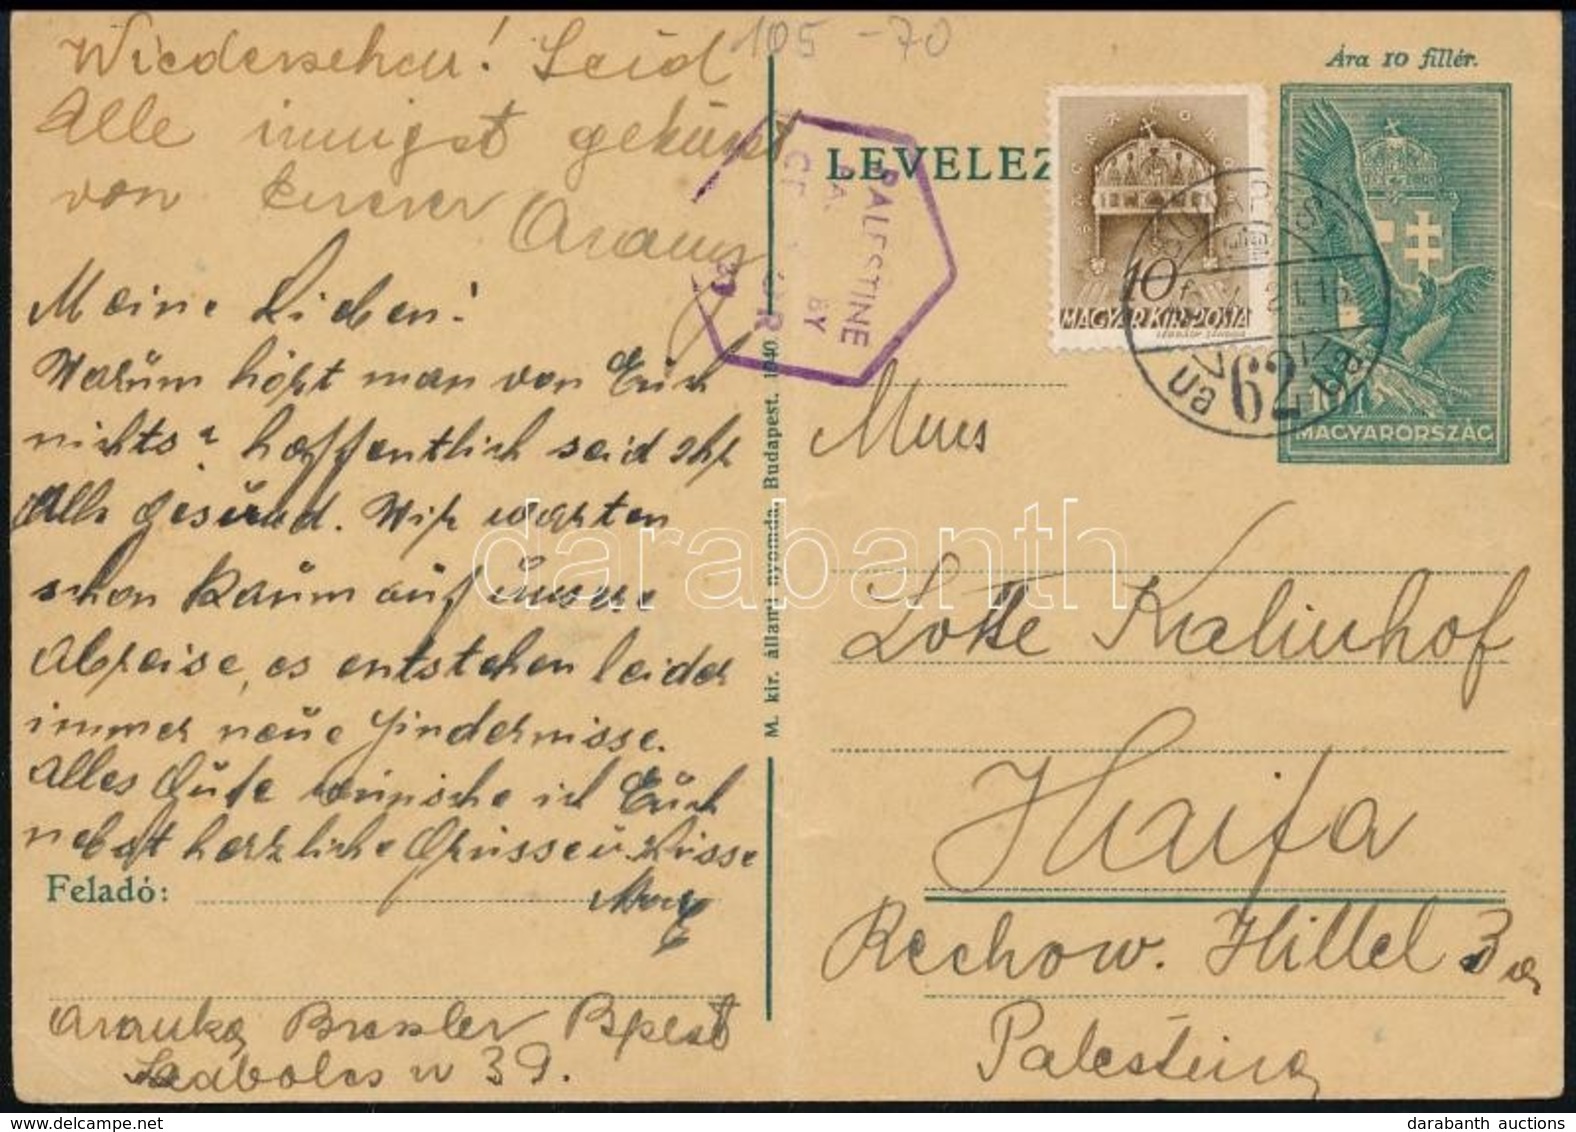 Wiedersehen! Seid
Alle innigst geküsst
von Eurer
Aranka
Meine Lieben!
Warum hört man von Euch
nichts? hoffentlich seid Ihr
Alle gesund. Wir warten
schon kaum auf unsere
Abreise, es entstehen leider
immer neue Hindernisse.
Alles Gute wünsche ich Euch
nebst herzliche Grüsse u. Küsse
Feladó:
Aranka Bressler Bpest
Szabolcs u 39.
105 -70
M. kir. állami nyomda, Budapest. 1940.
PALESTINE
BY
LEVELEZ
Ára 10 fillér.
10 f
MAGYAR KIR. POSTA
62
10 f
MAGYARORSZÁG
Lotte Kalinhof
Haifa
Rechow. Hillel 3
Palestina
darabanth
darabanth auctions